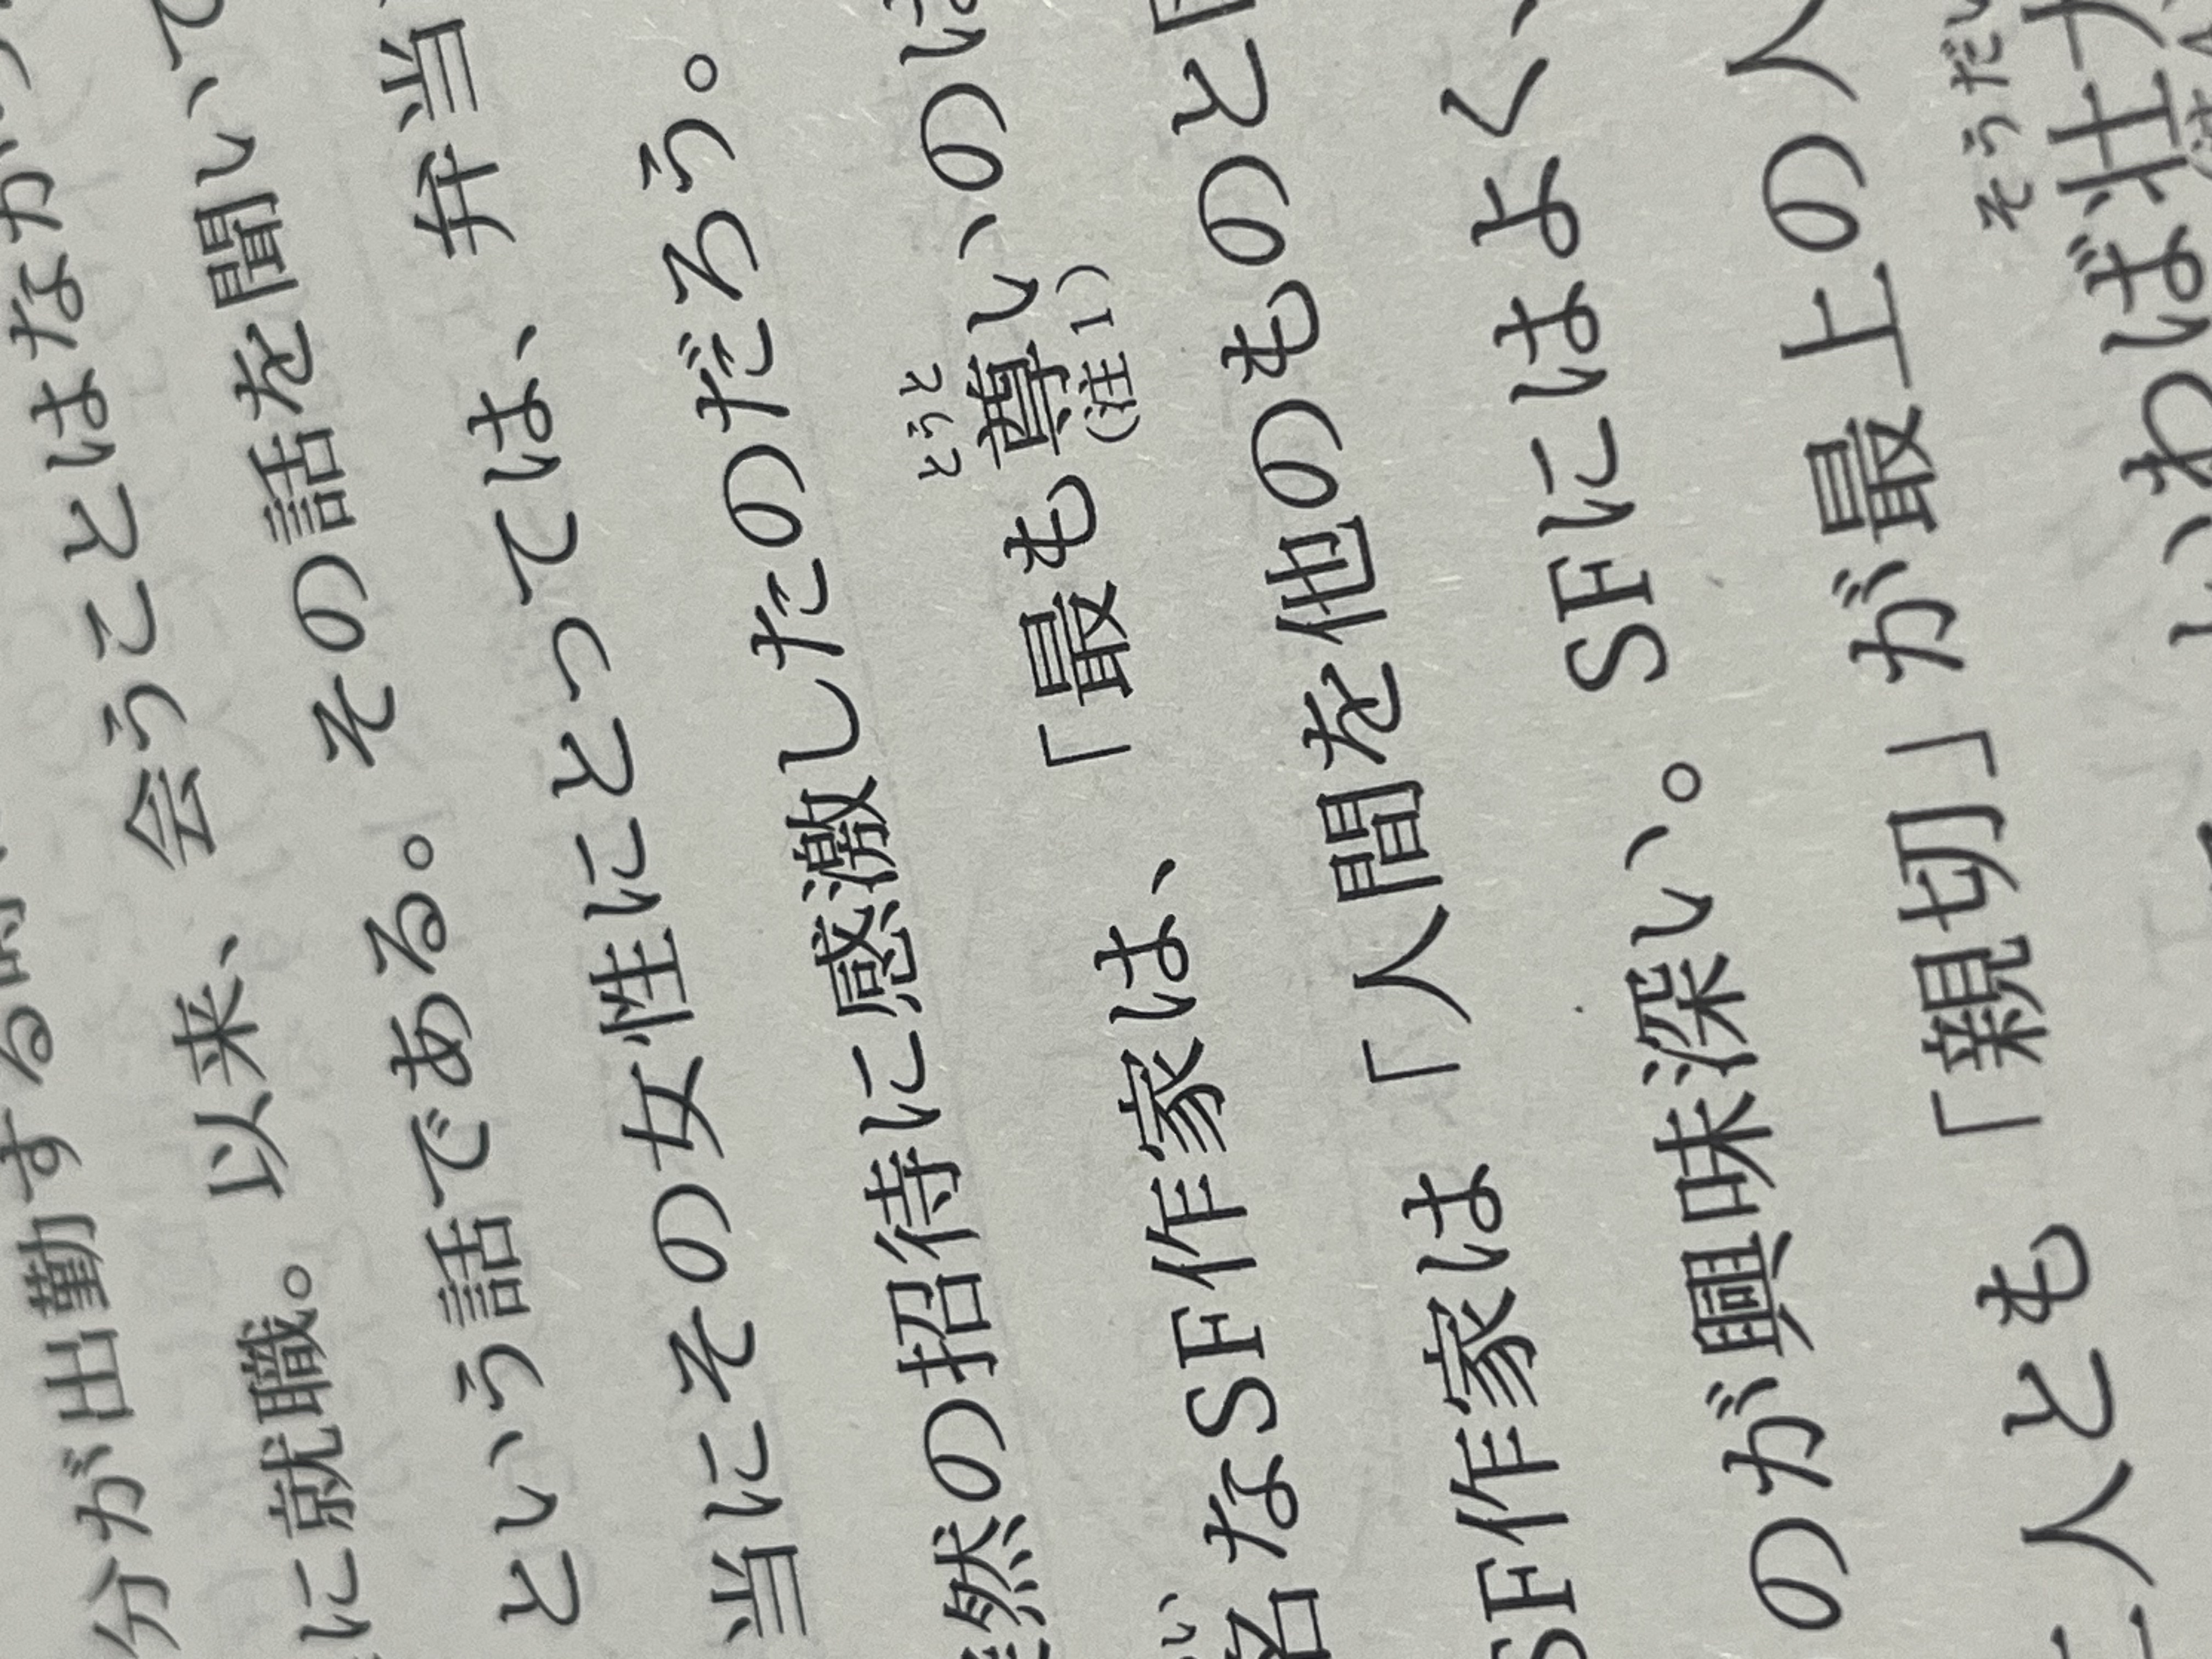 分が出勤する
に就職。以来、会うことはなか
という話である。その話を聞いて
当にその女性にとっては、弁当
然の招待に感激したのだろう。
とうと
名なSF作家は、「最も尊いのは
(注1)
SF作家は「人間を他のものと
のが興味深い。SFにはよく、
二人とも「親切」が最上の人
そうだい
いわば壮大